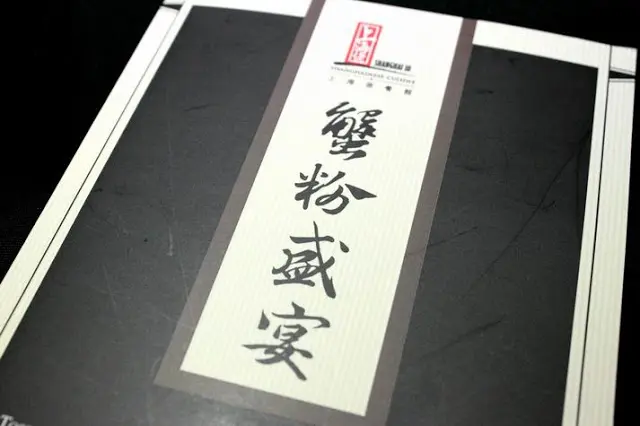 上海滩
SHANGHAI 滩
SHANGHAINESE CUISINE
上海滩餐館
蟹粉盛宴